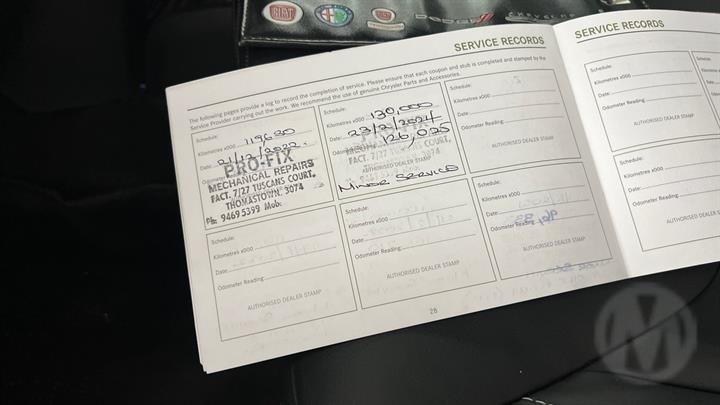 FIAT
DODGE
CHRYSLER
SERVICE RECORDS
The following pages provide a log to record the completion of service. Please ensure that each coupon and stub is completed and stamped by the
Service Provider carrying out the work. We recommend the use of genuine Chrysler Parts and Accessories.
Schedule:
Kilometres x000 119630
Date: 21/12/2022.
PRO-FIX
MECHANICAL REPAIRS
FACT. 7/27 TUSCANS COURT,
THOMASTOWN. 3074
Ph: 9469 5399 Mob:
Schedule:
Kilometres x000 130,000
Date: 23/2/2024
Odometer 126,025
PRO-FIX
FACT. 7/27 TUSCANS COURT,
AUTHORISED DEALER STAMP
MINOR SERVICE
Schedule:
Kilometres x000
Date:
Odometer Reading:
AUTHORISED DEALER STAMP
Schedule:
Kilometres x000
Date:
Odometer Reading:
AUTHORISED DEALER STAMP
Schedule:
Kilometres x000
Date:
Odometer Reading:
AUTHORISED DEALER STAMP
Schedule:
Kilometres x000
Date:
Odometer Reading
AUTHORISED DEALER STAMP
28
SERVICE RECORDS
Schedule:
Kilometres x000
Date:
Odometer Reading:
AUTHORISED DEALER STAMP
Schedule:
Kilometres x000
Date:
Odometer Reading:
AUTHORISED DEALER STAMP